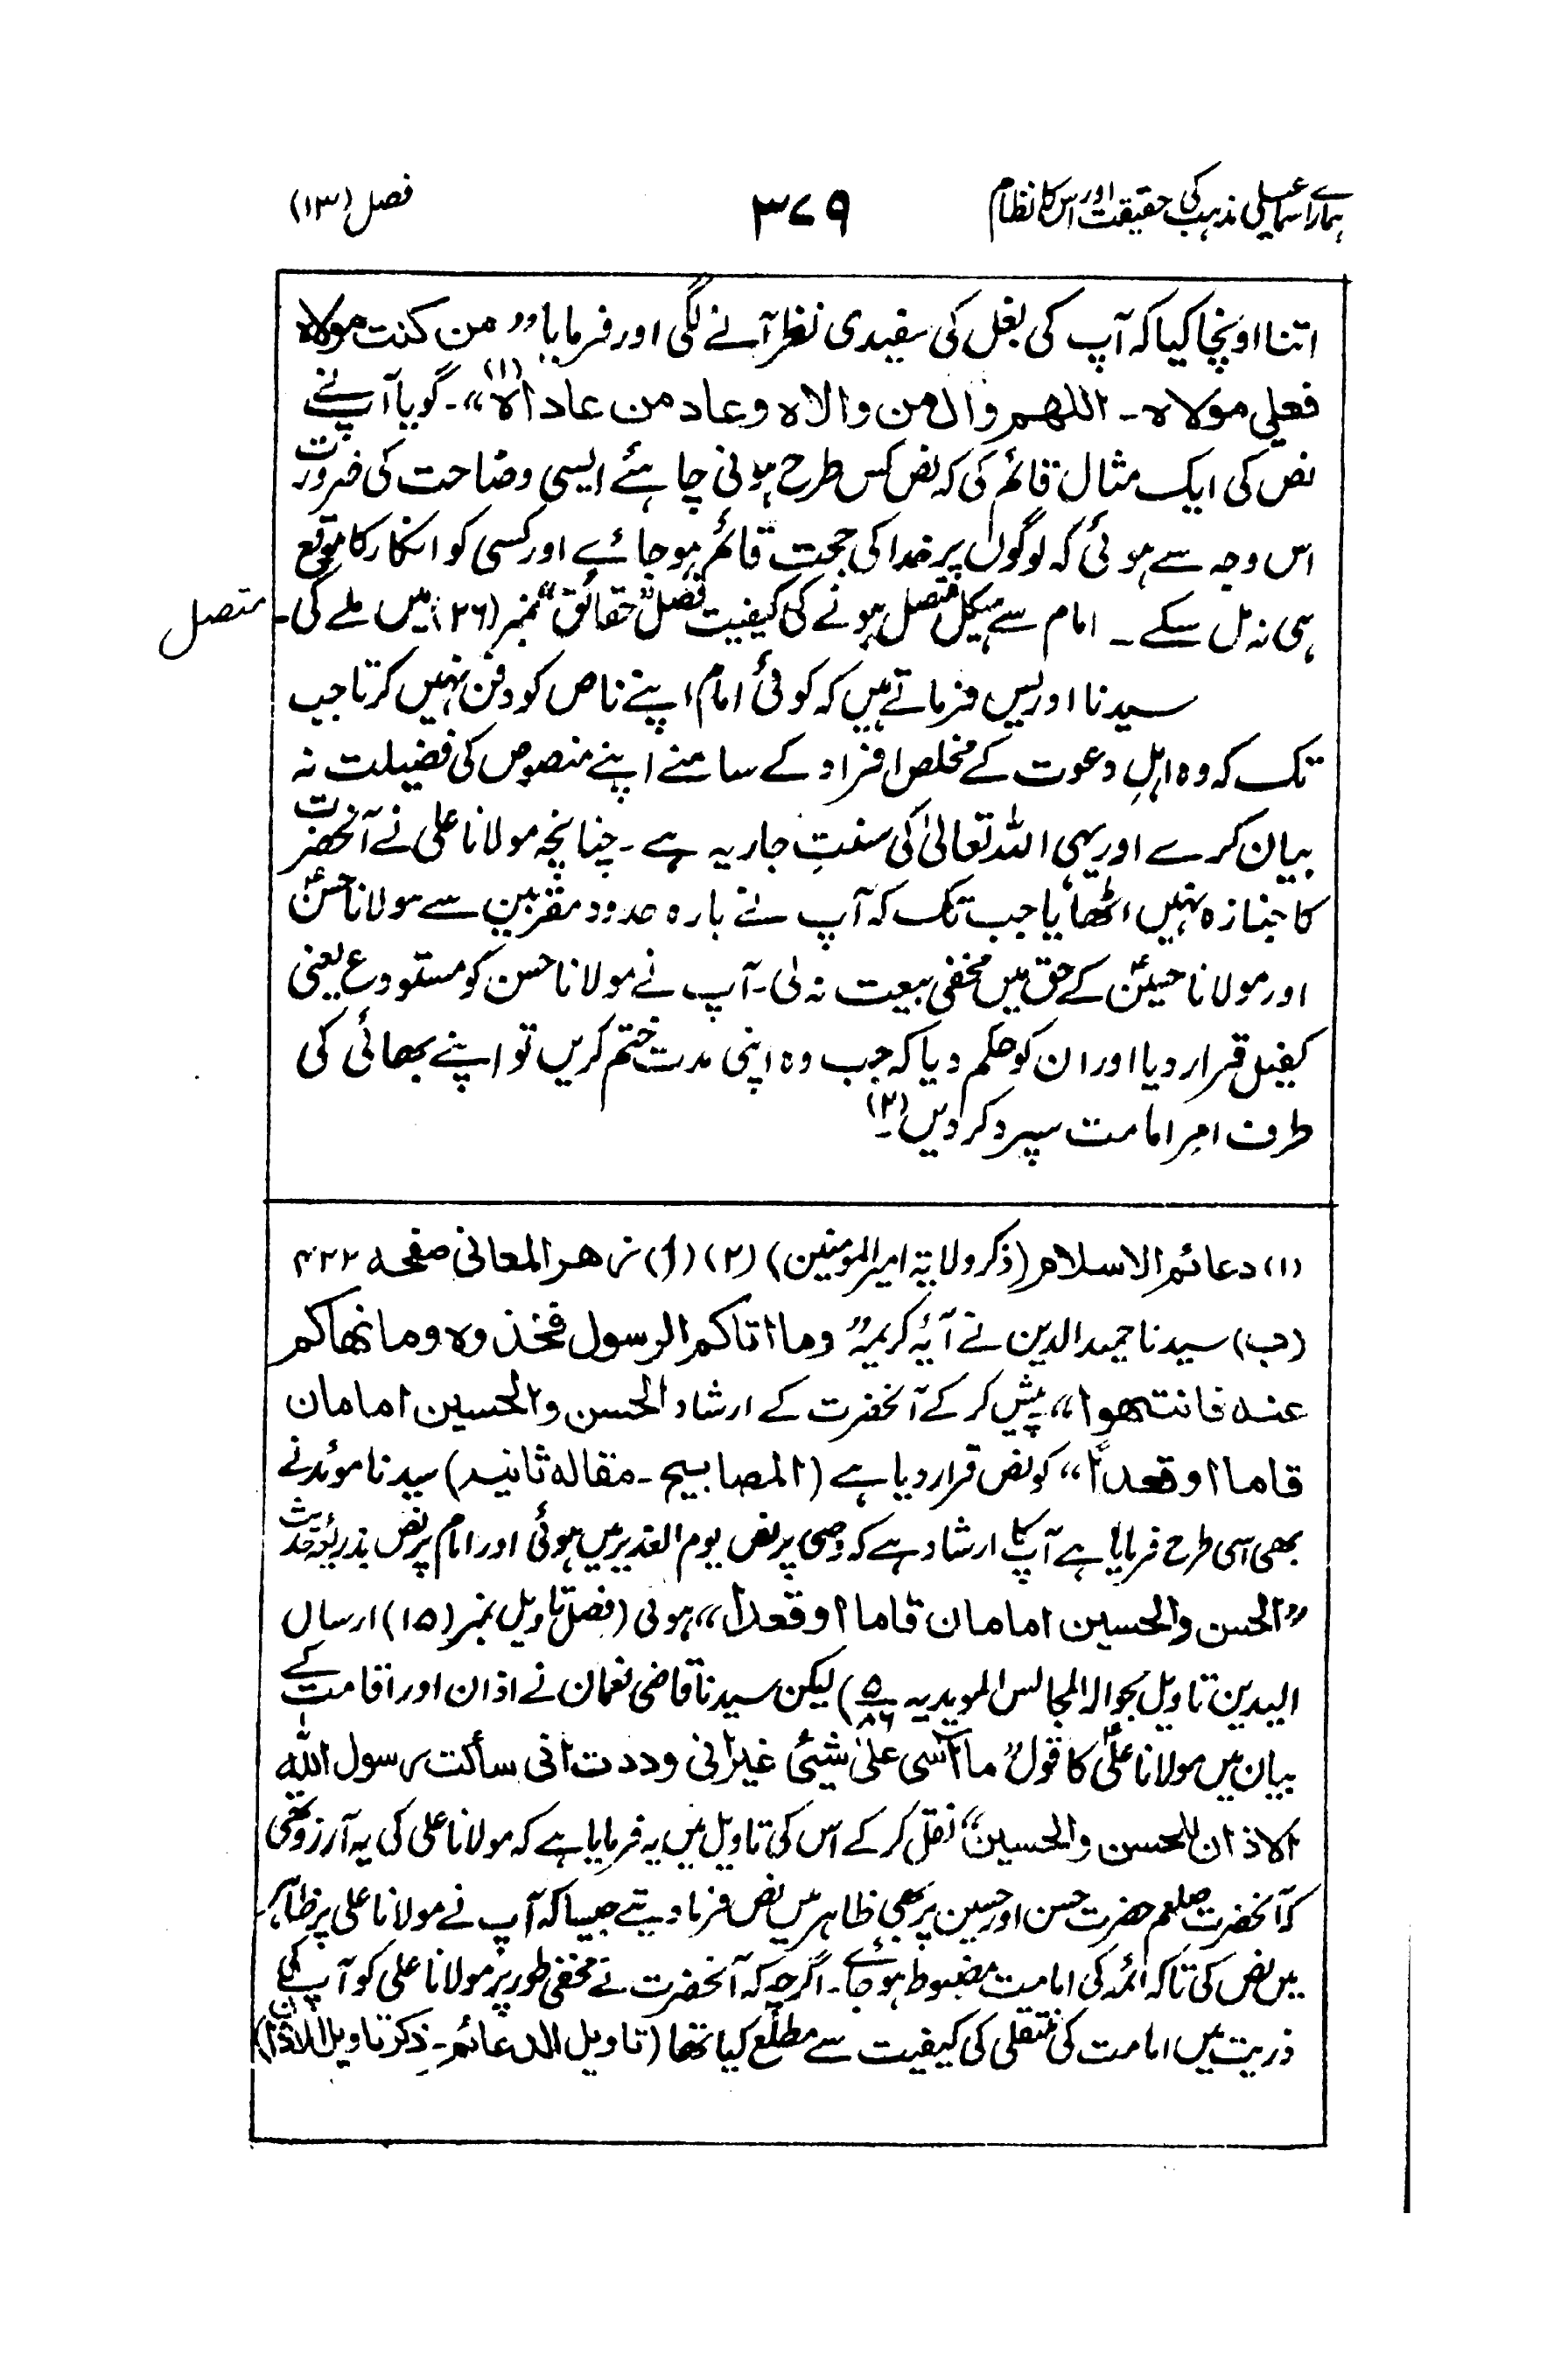 ہمارے اسماعیلی مذہب کی حقیقت اور اس کا نظام
۳۷۹
فصل (۱۳)
اتنا اونچا کیا کہ آپ کی بغل کی سفیدی نظر آنے لگی اور فرمایا ”من کنت مولاہ
فعلی مولاہ ۔ اللھم وال من والاہ وعاد من عاداہ“ (۱)۔ گویا آپ نے
نص کی ایک مثال قائم کی کہ نص کس طرح ہونی چاہئے ایسی وضاحت کی ضرورت
اس وجہ سے ہوئی کہ لوگوں پر خدا کی حجت قائم ہوجائے اور کسی کو انکار کا موقع
ہی نہ مل سکے ۔ امام سے ہیکل متصل ہونے کی کیفیت فصل ”حقائق“ نمبر (۲۶) میں ملے گی۔
متصل
سیدنا ادریس فرماتے ہیں کہ کوئی امام اپنے ناص کو دفن نہیں کرتا جب
تک کہ وہ اہلِ دعوت کے مخلص افراد کے سامنے اپنے منصوص کی فضیلت نہ
بیان کرے اور یہی اللہ تعالیٰ کی سنتِ جاریہ ہے ۔ چنانچہ مولانا علی نے آنحضرت
کا جنازہ نہیں اٹھایا جب تک کہ آپ نے بارہ حدود مقربین سے مولانا حسنؑ
اور مولانا حسینؑ کے حق میں مخفی بیعت نہ لی۔ آپ نے مولانا حسن کو مستودع یعنی
کفیل قرار دیا اور ان کو حکم دیا کہ جب وہ اپنی مدت ختم کریں تو اپنے بھائی کی
طرف امرِ امامت سپرد کر دیں (۲)۔
(۱) دعائم الاسلام (ذکر ولایۃ امیر المومنین) (۲) (۱) زھر المعانی صفحہ ۴۳۲
(ب) سیدنا حمید الدین نے آیۂ کریمہ ”وما اتاکم الرسول فخذوہ وما نھاکم
عنہ فانتھوا“ پیش کر کے آنحضرت کے ارشاد الحسن والحسین امامان
قاما او قعدا“ کو نص قرار دیا ہے (المصابیح ۔ مقالہ ثانیہ) سیدنا موئد نے
بھی اسی طرح فرمایا ہے آپ کا ارشاد ہے کہ وصی پر نص یوم الغدیر میں ہوئی اور امام پر نص بذریعۂ حدیث
”الحسن والحسین امامان قاما او قعدا“ ہوئی (فصل تاویل نمبر (۱۵) ارسال
الیدین تاویل بحوالہ المجالس المویدیہ ۵/۸۶) لیکن سیدنا قاضی نعمان نے اذان اور اقامت کے
بیان میں مولانا علیؑ کا قول ”ما آسی علیٰ شیئ غیر انی وددت انی سألت رسول اللہ
الاذان للحسن والحسین“ نقل کر کے اس کی تاویل میں یہ فرمایا ہے کہ مولانا علی کی یہ آرزو تھی
کہ آنحضرت صلعم حضرت حسن اور حسین پر بھی ظاہر میں نص فرما دیتے جیسا کہ آپ نے مولانا علی پر ظاہر
میں نص کی تاکہ ائمہ کی امامت مضبوط ہو جائے۔ اگرچہ کہ آنحضرت نے مخفی طور پر مولانا علی کو آپ کی
ذریت میں امامت کی منتقلی کی کیفیت سے مطلع کیا تھا (تاویل الدعائم ۔ ذکر تاویل الاذان)